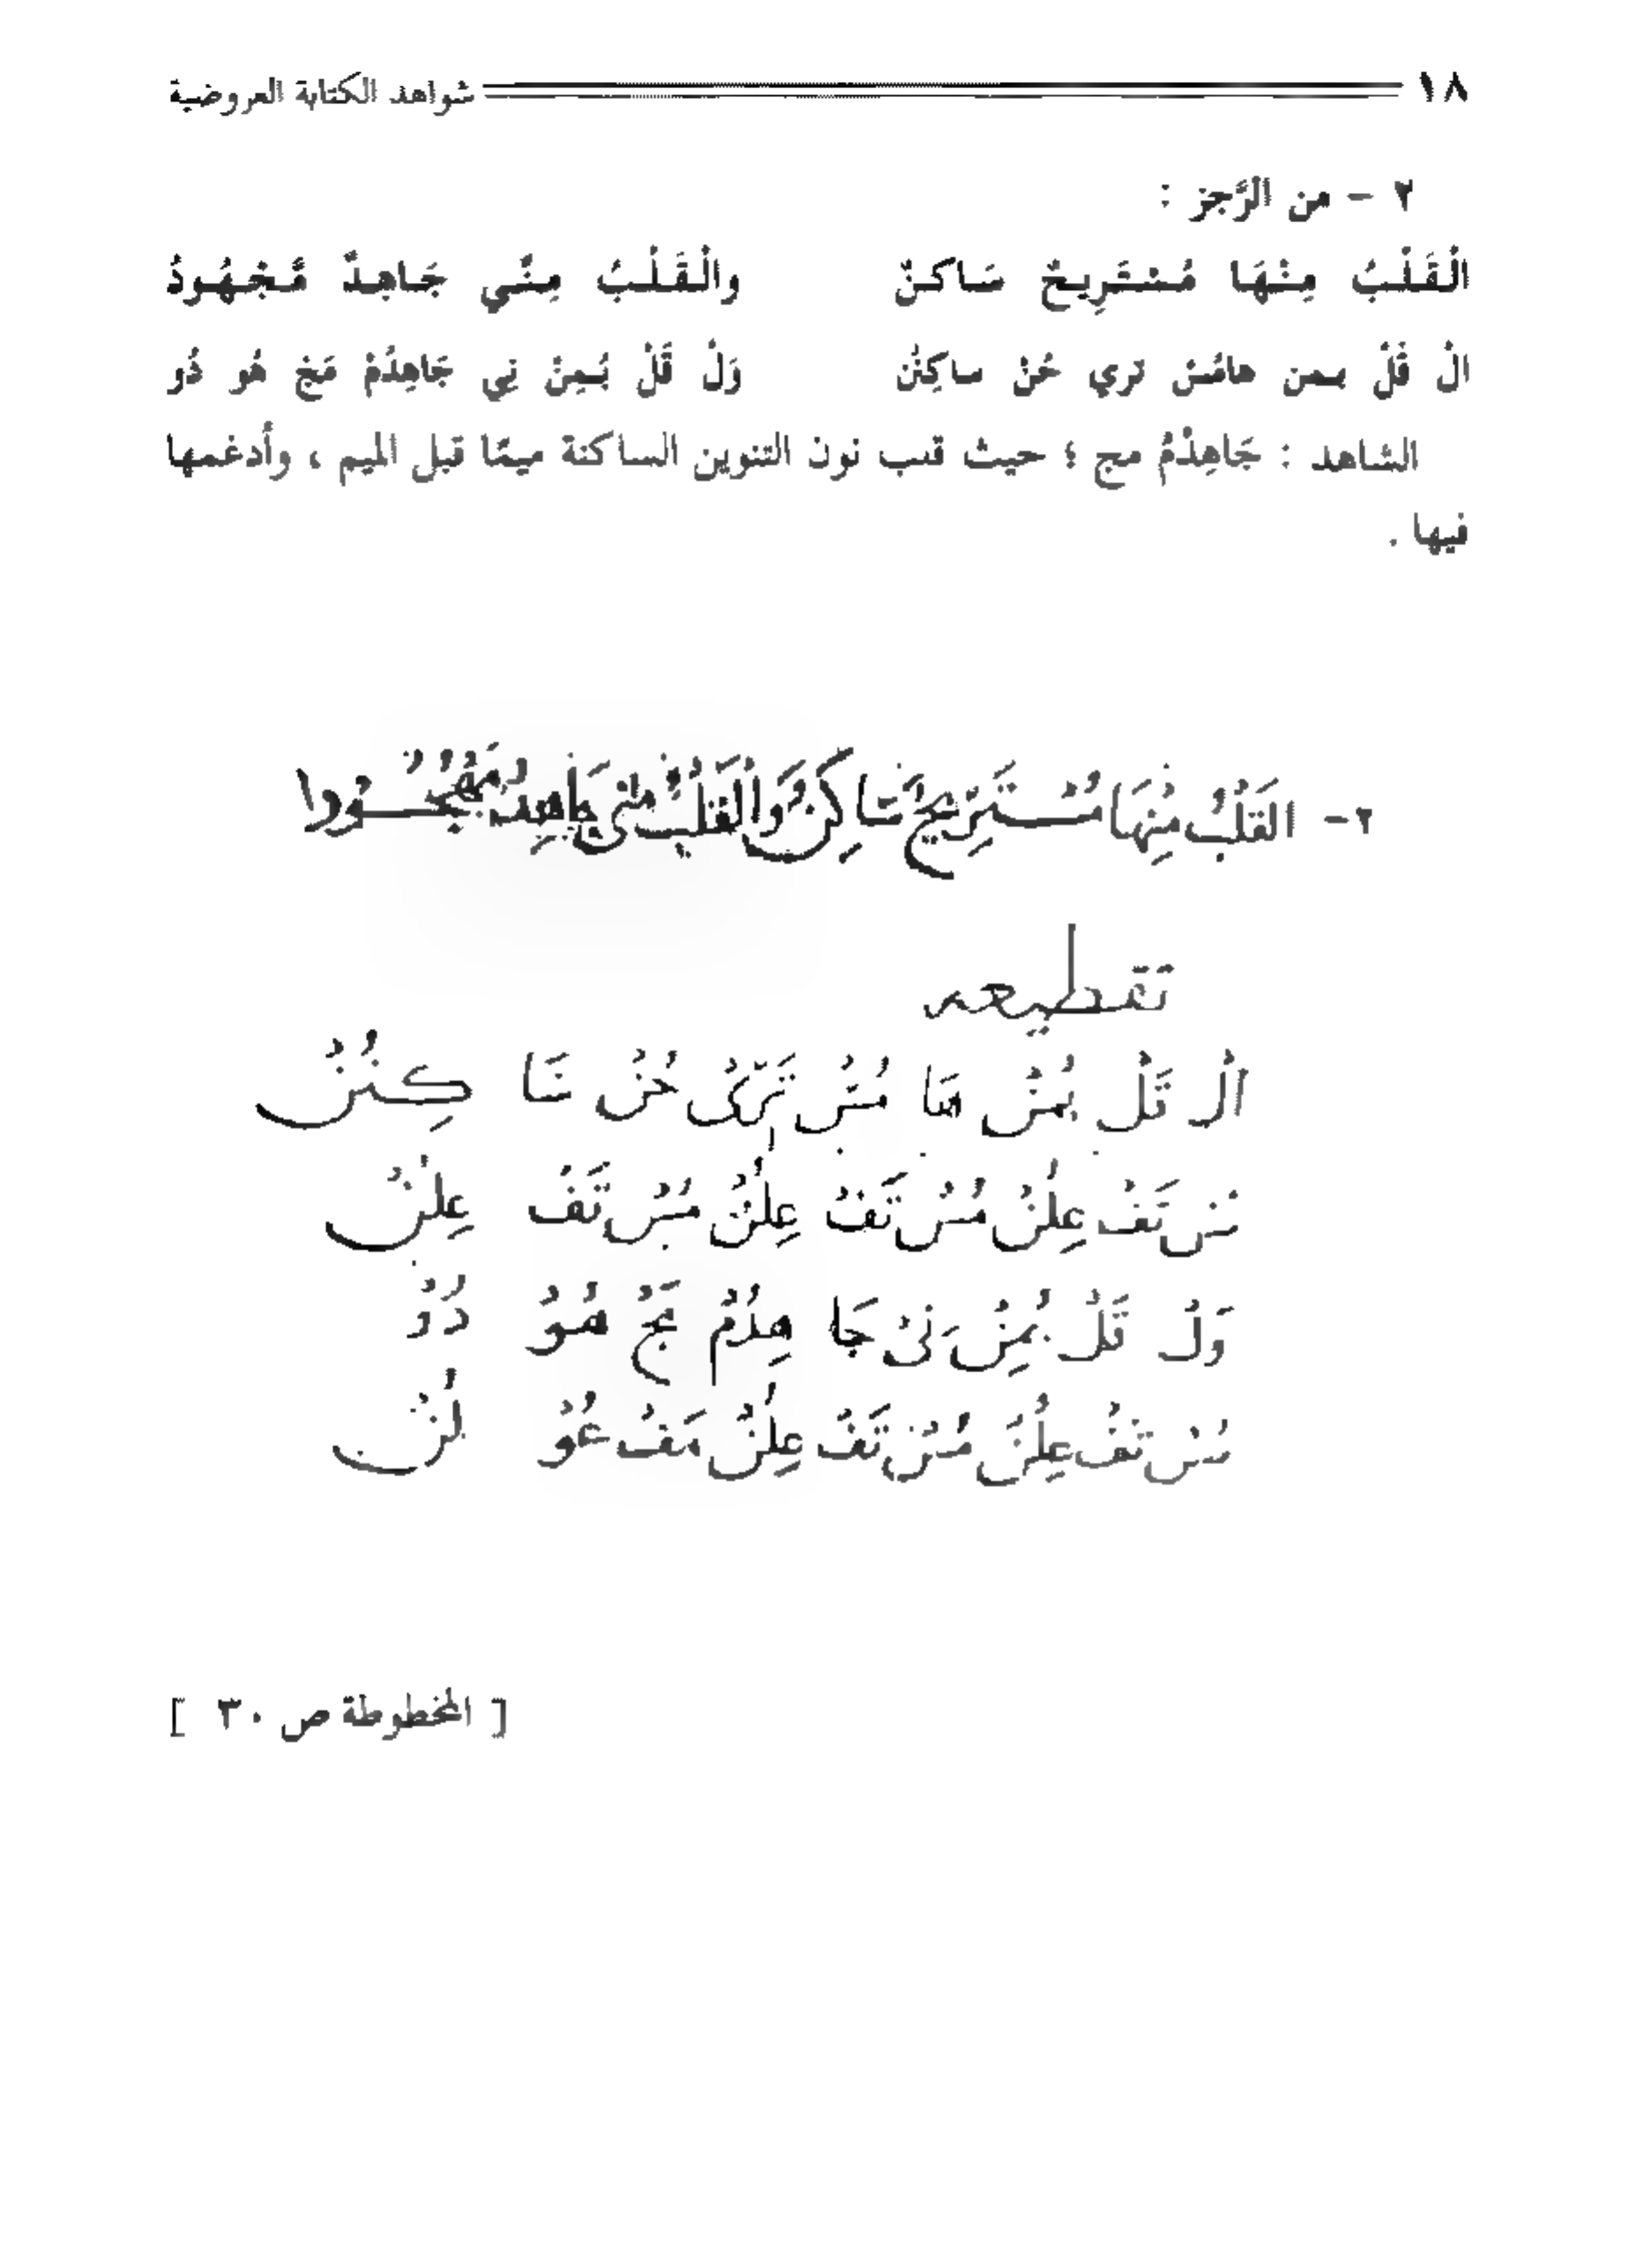 ١٨ شواهد الكتابة العروضية
٢ - من الرَّجز :
الْقَلْبُ مِنْهَا مُسْتَرِيحٌ سَاكنٌ والْقَلْبُ مِنِّي جَاهِدٌ مَّجْهُودُ
الْ قَلْ بمن هامُسْ تري حُنْ ساكِنُن وَلْ قَلْ بُمِنْ نِي جَاهِدُمْ مَجْ هُو دُو
الشاهد : جَاهِدُمْ مج ؛ حيث قلب نون التنوين الساكنة ميمًا قبل الميم ، وأدغمها
فيها .
٢- القَلْبُ مِنْهَا مُسْتَرِيحٌ سَاكِنٌ وَالْقَلْبُ مِنِّى جَاهِدٌ
تقطيعه
الْ قَلْ بُمِنْ هَا مُسْ تَرِىْ حُنْ سَا كِنُنْ
مُسْ تَفْ عِلُنْ مُسْ تَفْ عِلُنْ مُسْ تَفْ عِلُنْ
وَلْ قَلْ بُمِنْ نِىْ جَا هِدُمْ مَجْ هُوْ دُوْ
مُسْ تَفْ عِلُنْ مُسْ تَفْ عِلُنْ مَفْ عُوْ لُنْ
[ المخطوطة ص ٣٠ ]